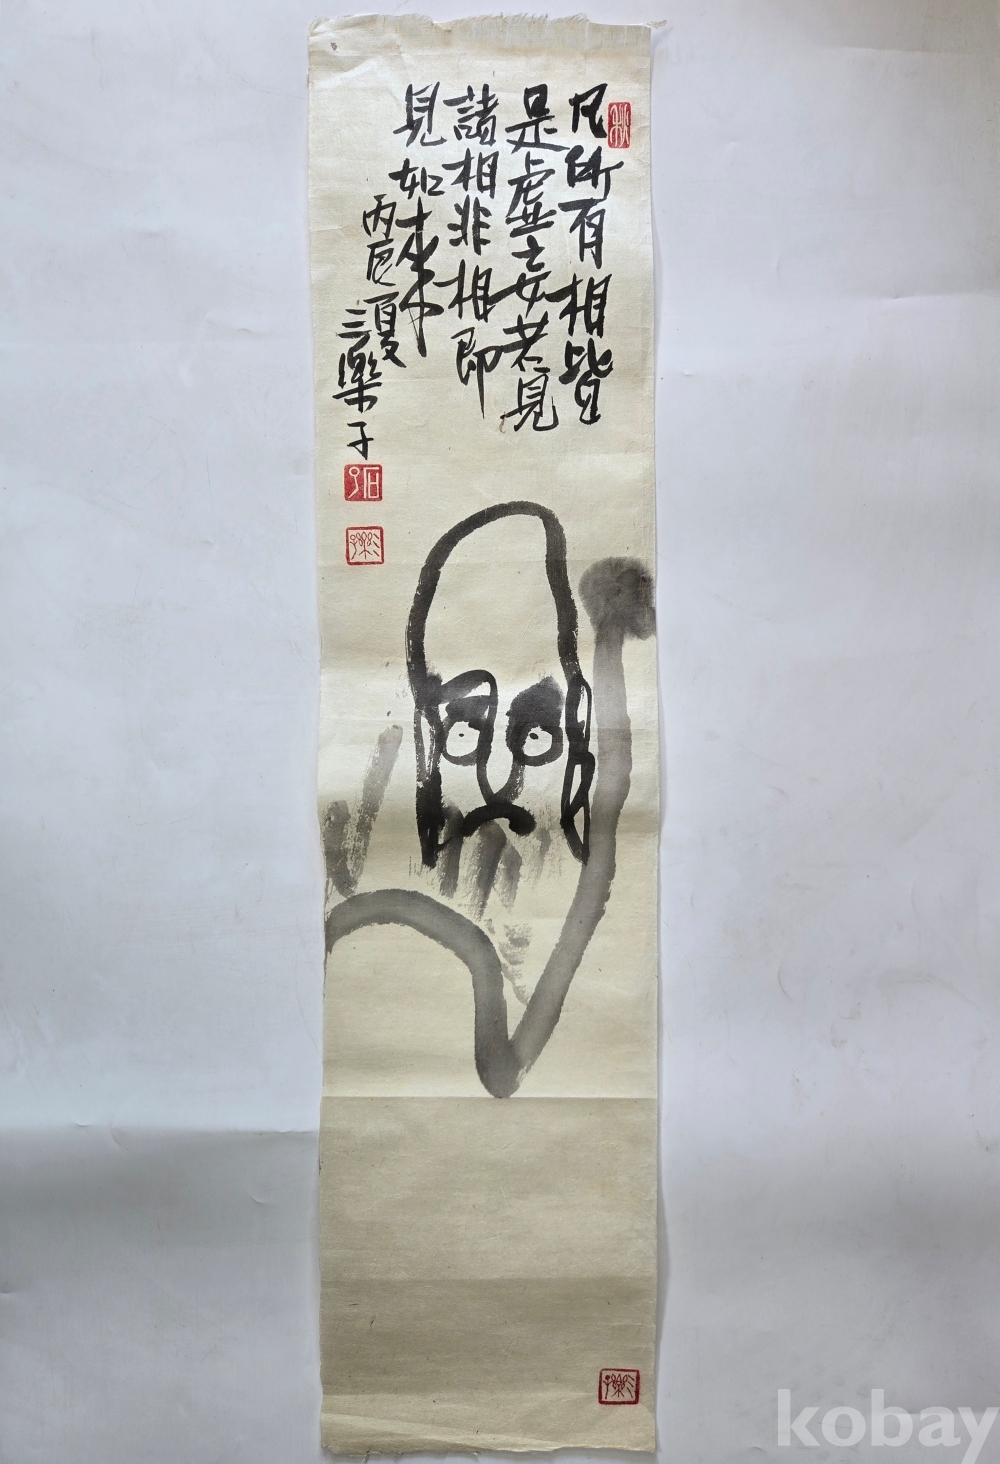 凡所有相皆
是虛妄若見
諸相非相即
見如來
丙辰夏
三樂子
kobay